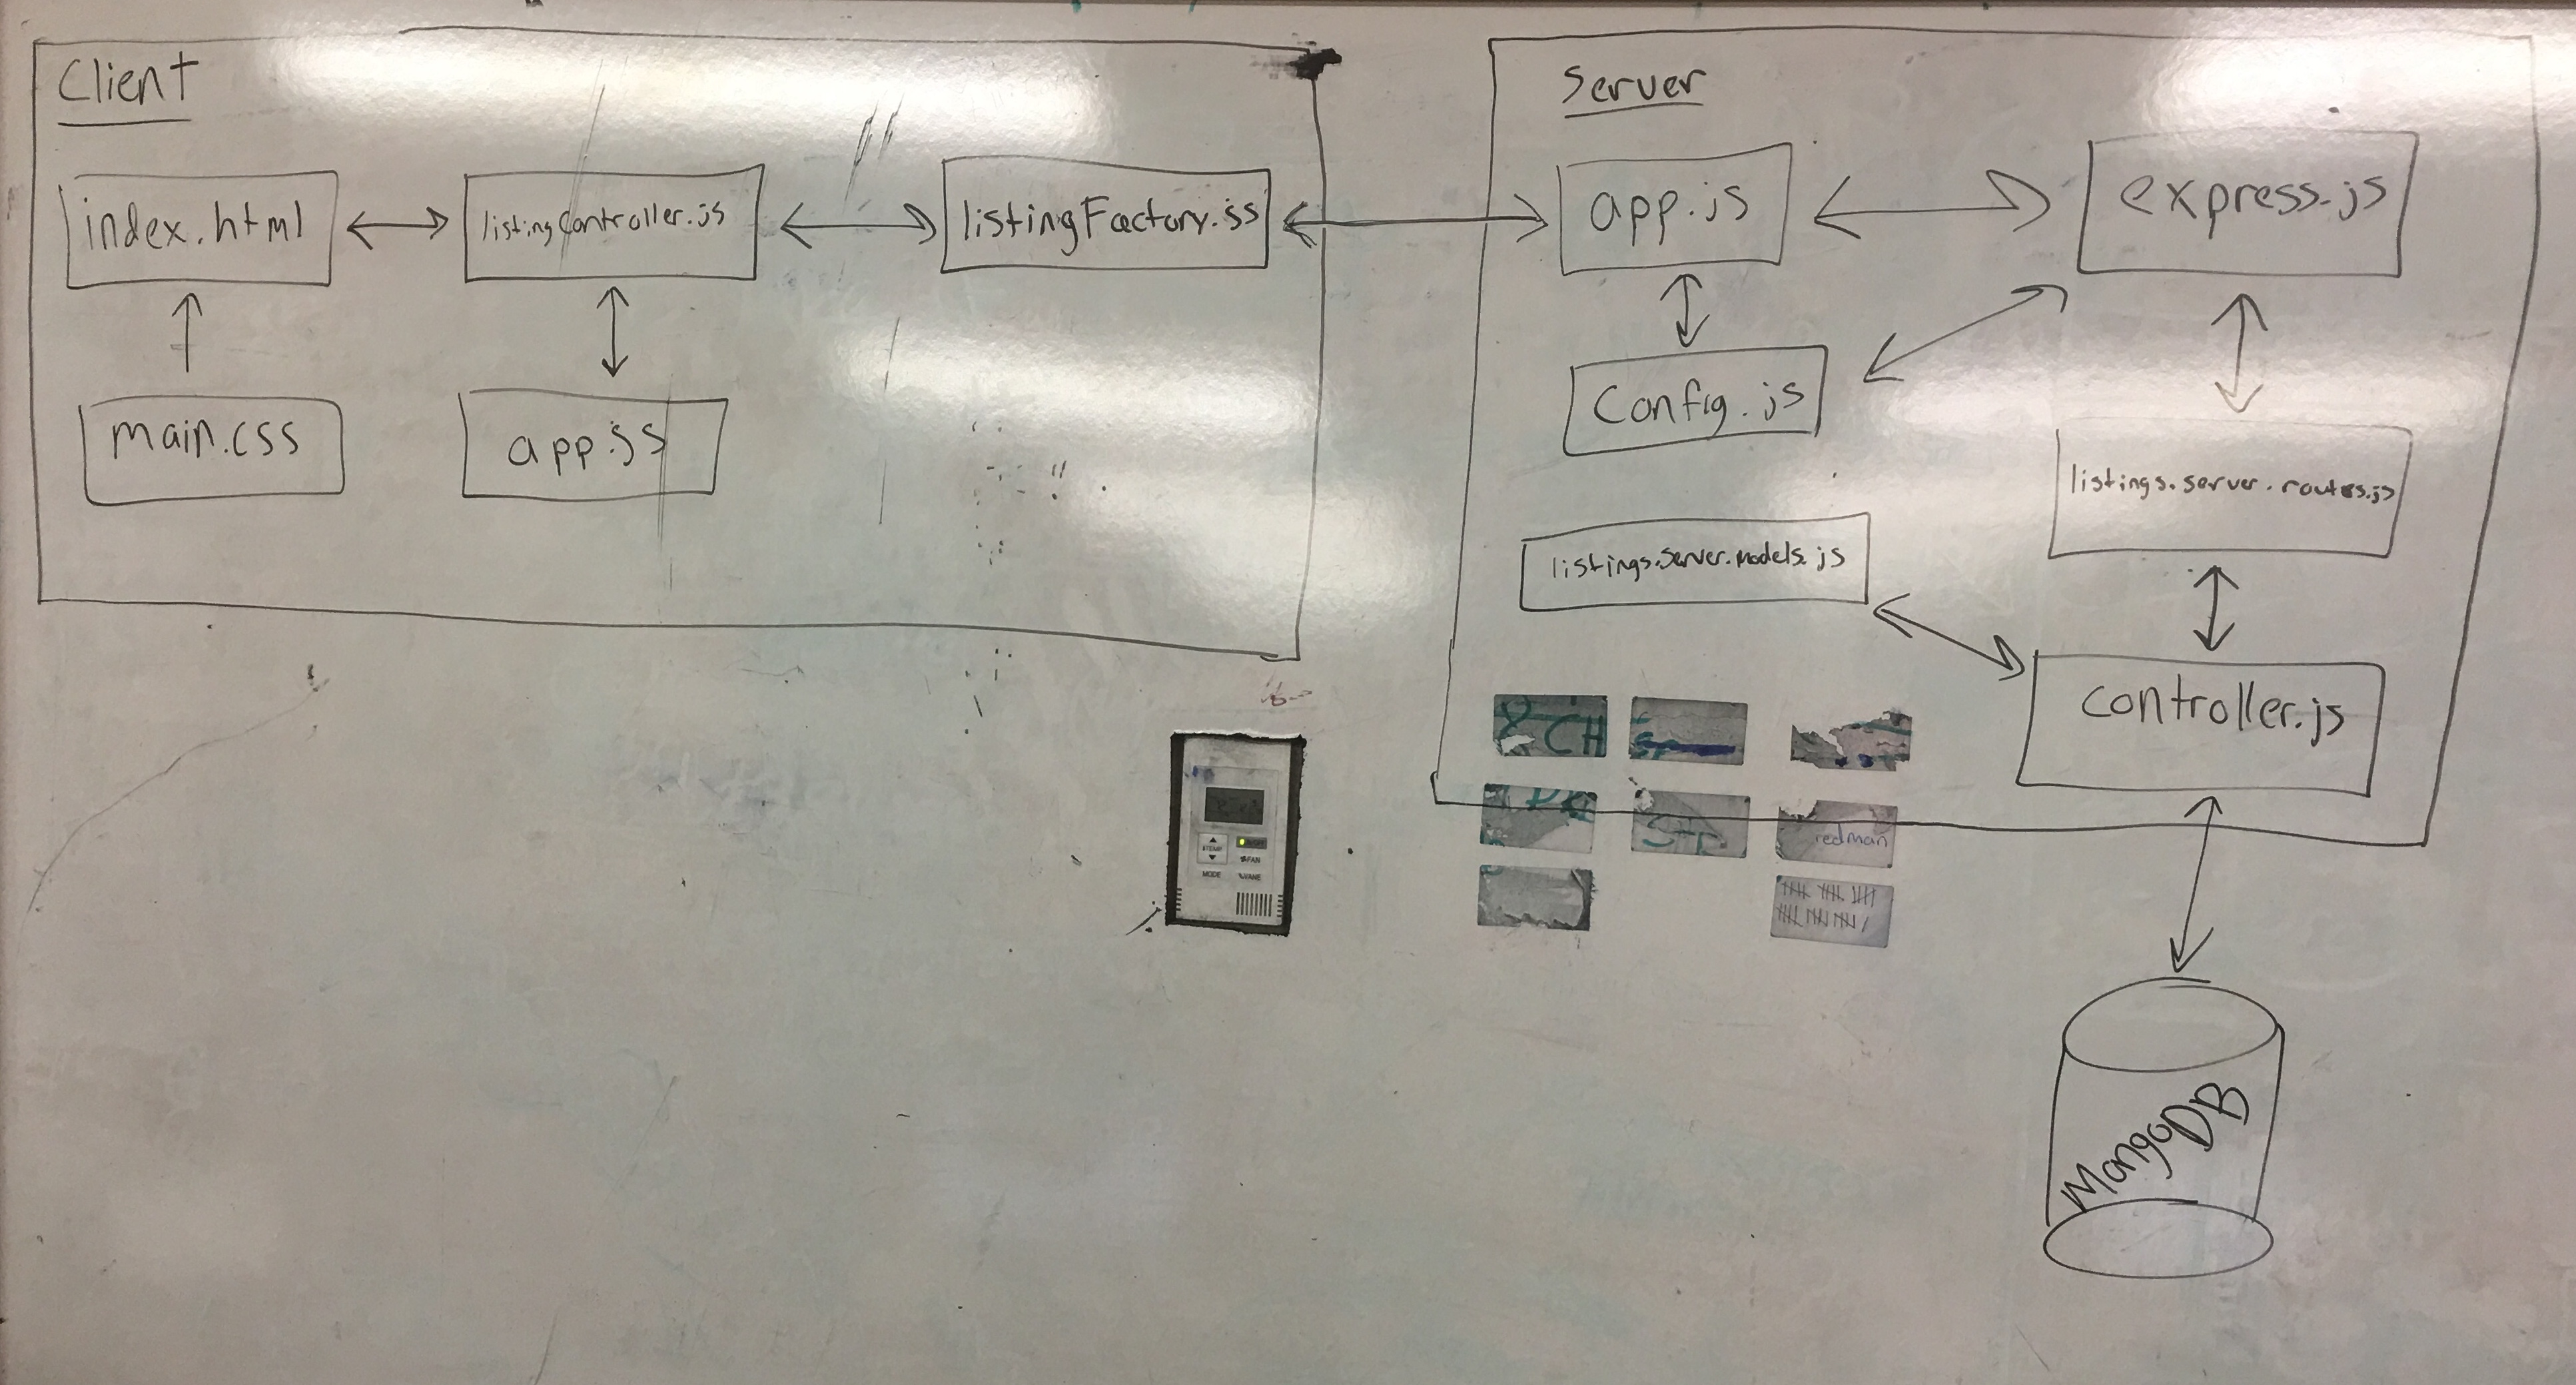 Client
index.html
listingController.js
listingFactory.js
main.css
app.js
Server
app.js
express.js
Config.js
listings.server.routes.js
listings.server.models.js
controller.js
MongoDB
& CH
redman
TEMP
FAN
MODE
VANE